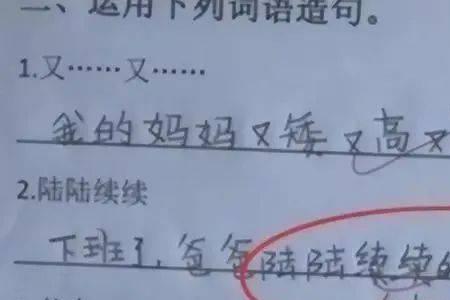 二、运用下列词语造句。
1.又……又……
我的妈妈又矮又高又
2.陆陆续续
下班了,爸爸陆陆续续的